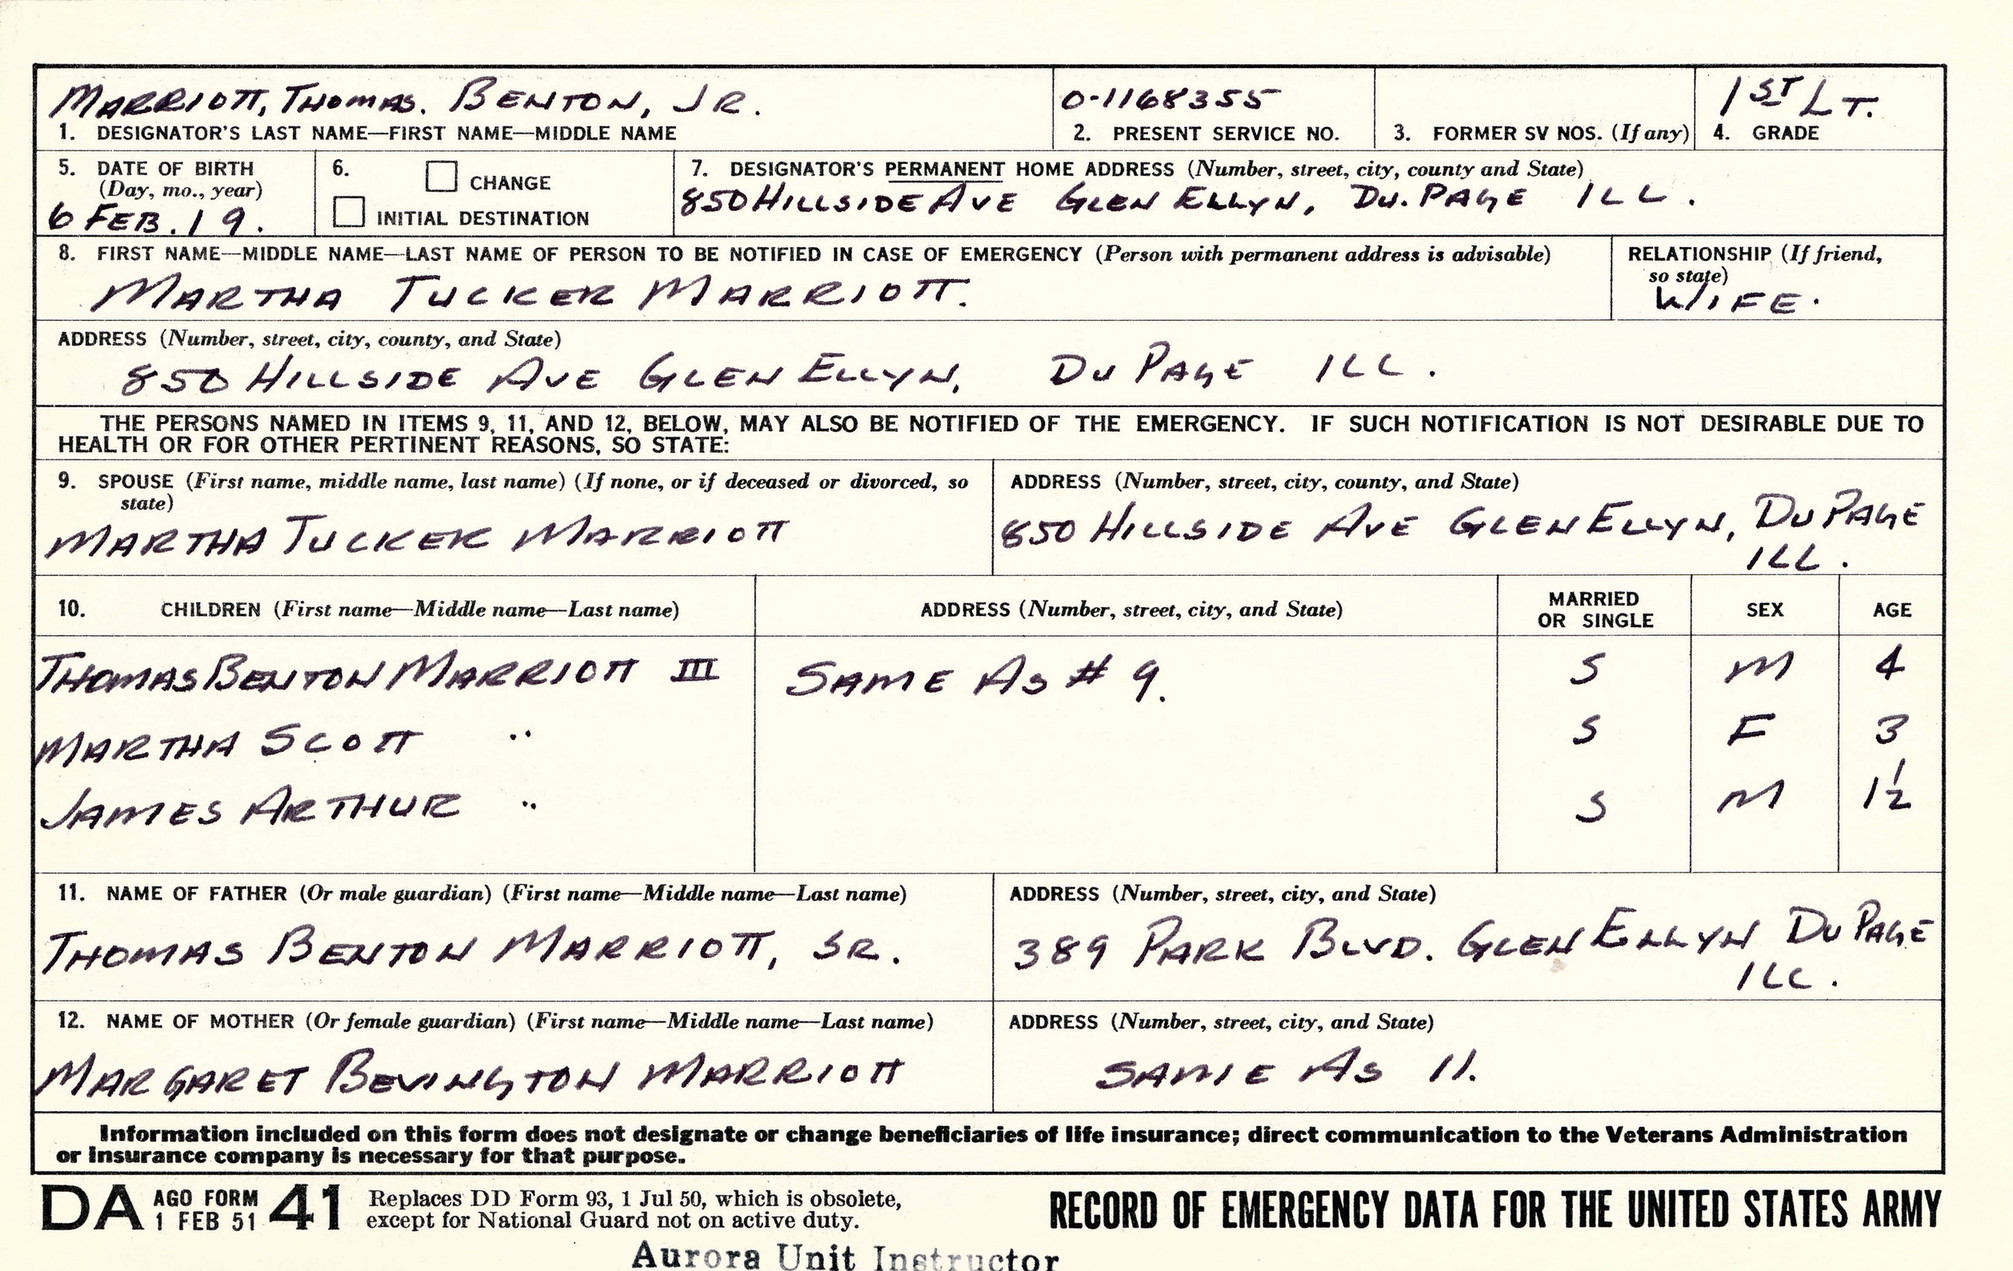 MARRIOTT, THOMAS. BENTON, JR.
1. DESIGNATOR'S LAST NAME—FIRST NAME—MIDDLE NAME
O-1168355
2. PRESENT SERVICE NO.
3. FORMER SV NOS. (If any)
1ST LT.
4. GRADE
5. DATE OF BIRTH
(Day, mo., year)
6 FEB. 19.
6.
CHANGE
INITIAL DESTINATION
7. DESIGNATOR'S PERMANENT HOME ADDRESS (Number, street, city, county and State)
850 HILLSIDE AVE GLEN ELLYN, DU.PAGE ILL.
8. FIRST NAME—MIDDLE NAME—LAST NAME OF PERSON TO BE NOTIFIED IN CASE OF EMERGENCY (Person with permanent address is advisable)
MARTHA TUCKER MARRIOTT.
RELATIONSHIP (If friend,
so state)
WIFE.
ADDRESS (Number, street, city, county, and State)
850 HILLSIDE AVE GLEN ELLYN, DU PAGE ILL.
THE PERSONS NAMED IN ITEMS 9, 11, AND 12, BELOW, MAY ALSO BE NOTIFIED OF THE EMERGENCY. IF SUCH NOTIFICATION IS NOT DESIRABLE DUE TO
HEALTH OR FOR OTHER PERTINENT REASONS, SO STATE:
9. SPOUSE (First name, middle name, last name) (If none, or if deceased or divorced, so
state)
MARTHA TUCKER MARRIOTT
ADDRESS (Number, street, city, county, and State)
850 HILLSIDE AVE GLEN ELLYN, DU PAGE
ILL.
10. CHILDREN (First name—Middle name—Last name)
ADDRESS (Number, street, city, and State)
MARRIED
OR SINGLE
SEX
AGE
THOMAS BENTON MARRIOTT III SAME AS # 9. S M 4
MARTHA SCOTT " S F 3
JAMES ARTHUR " S M 1½
11. NAME OF FATHER (Or male guardian) (First name—Middle name—Last name)
THOMAS BENTON MARRIOTT, SR.
ADDRESS (Number, street, city, and State)
389 PARK BLVD. GLEN ELLYN DU PAGE
ILL.
12. NAME OF MOTHER (Or female guardian) (First name—Middle name—Last name)
MARGARET BEVINGTON MARRIOTT
ADDRESS (Number, street, city, and State)
SAME AS 11.
Information included on this form does not designate or change beneficiaries of life insurance; direct communication to the Veterans Administration
or insurance company is necessary for that purpose.
DA AGO FORM 41
1 FEB 51
Replaces DD Form 93, 1 Jul 50, which is obsolete,
except for National Guard not on active duty.
RECORD OF EMERGENCY DATA FOR THE UNITED STATES ARMY
Aurora Unit Instructor